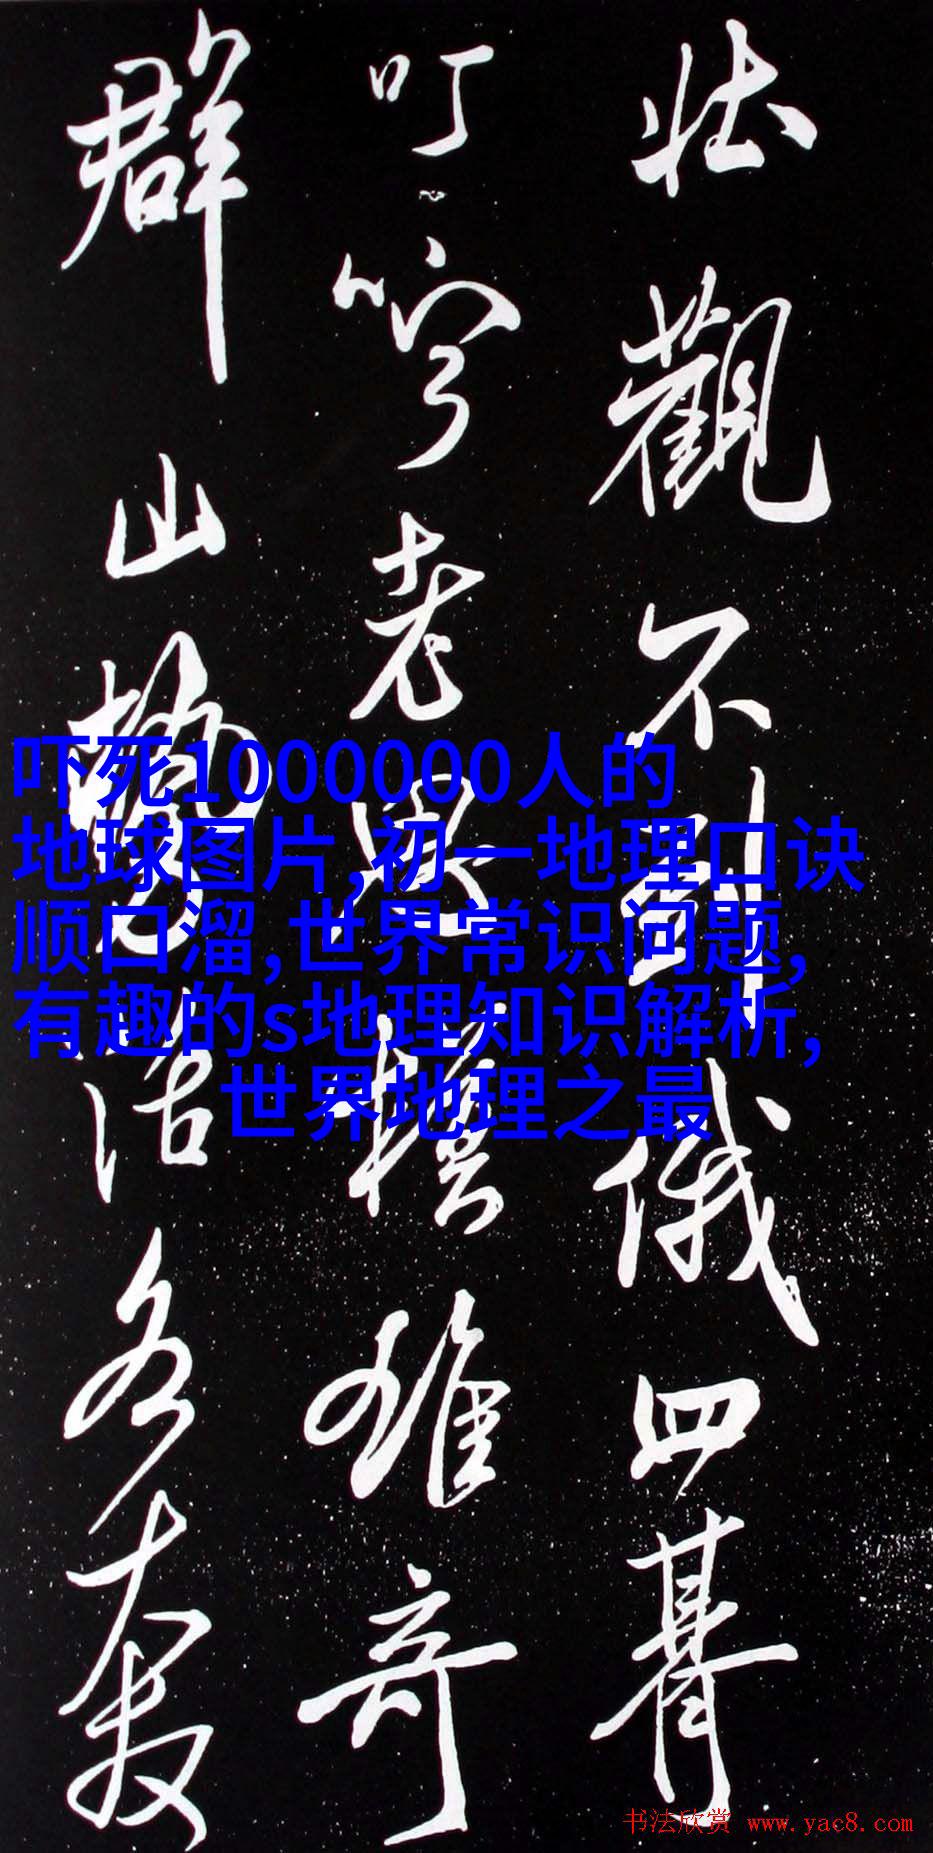 壯觀不俄四
叮嚀老雄奇
群山活各
吓死1000000人的
地球图片,初一地理口诀
顺口溜,世界常识问题,
有趣的s地理知识解析,
世界地理之最
书法欣赏 www.yac8.com